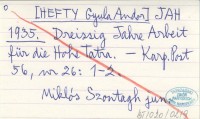 [HEFTY Gyula Andor] JAH
1935. Dreissig Jahre Arbeit
für die Hohe Tatra. — Karp. Post
56, nr 26: 1-2.
Miklós Szontagh jun.